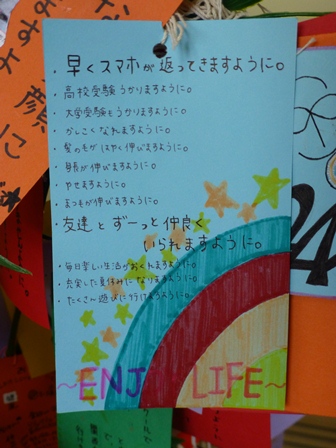 ・早くスマホが返ってきますように。
・高校受験うかりますように。
・大学受験もうかりますように。
・かしこくなれますように。
・髪のモゲはやく伸びますように。
・身長が伸びますように。
・やせますように。
・まつもが伸びますように。
・友達とずーっと仲良く
いられますように。
・毎日楽しい生活がおくれますように。
・充実した夏休みになりますように。
・たくさん遊びに行けますように。
~ENJ LIFE~
顔に